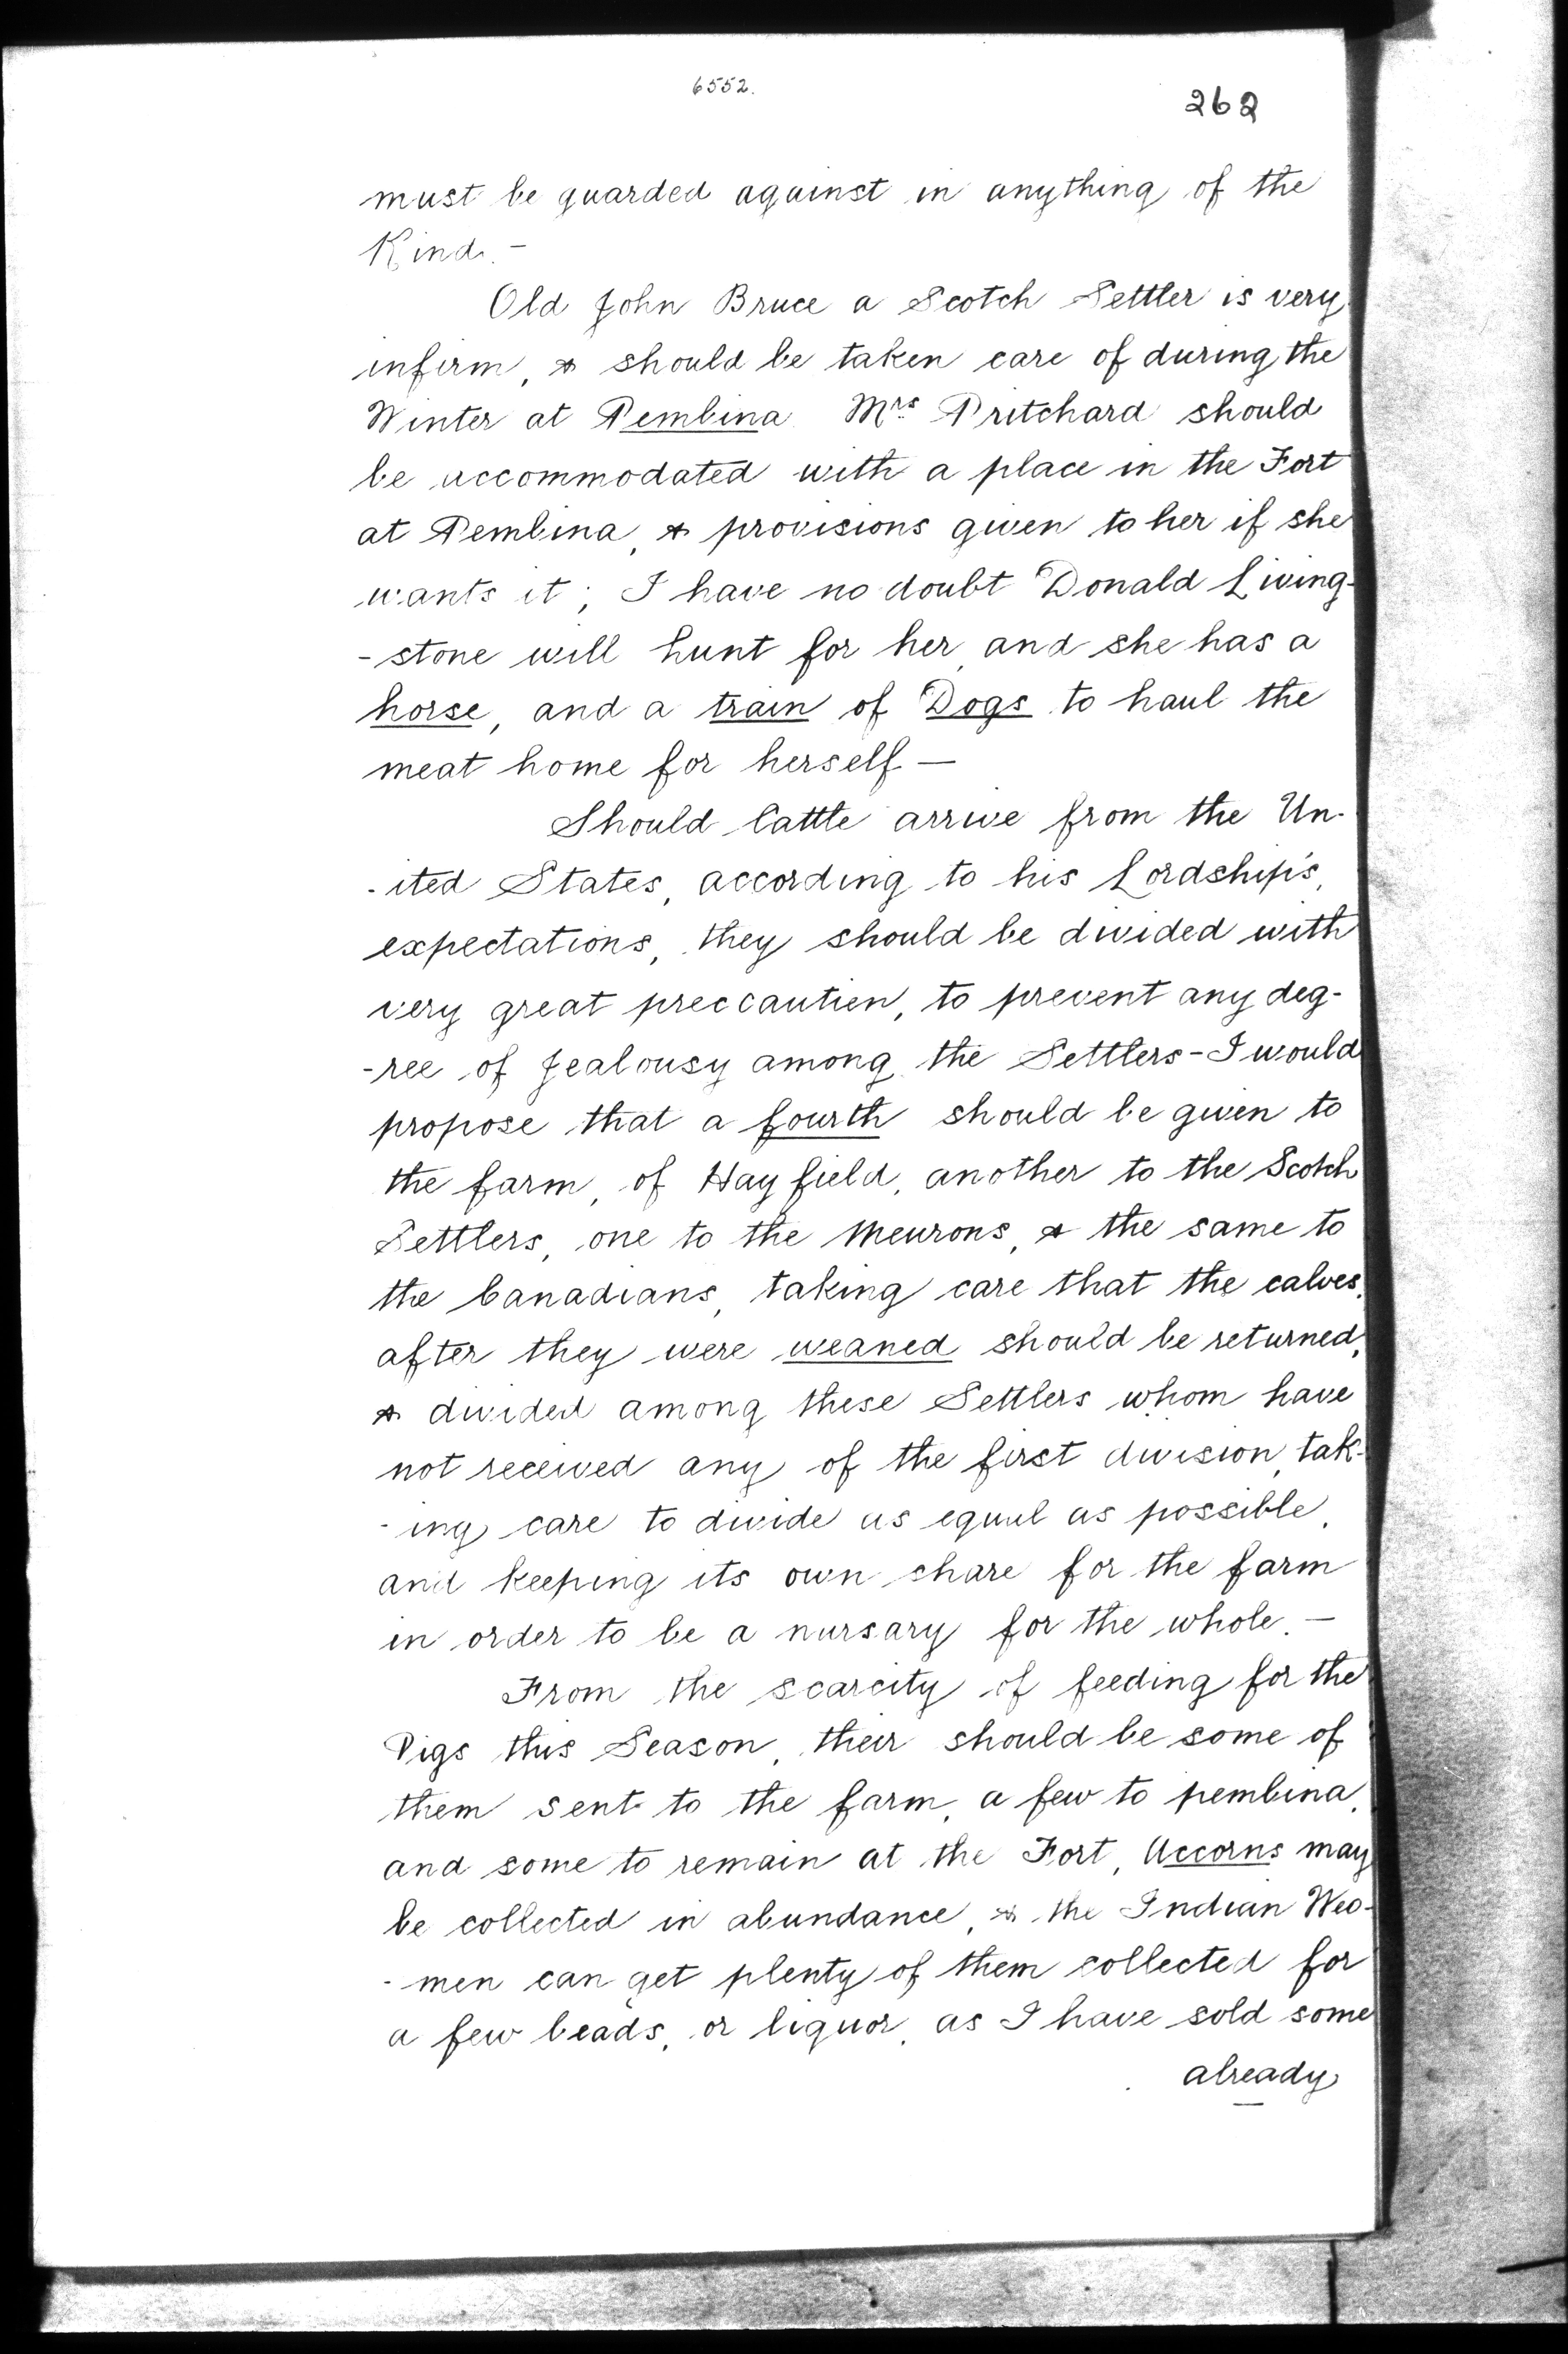 6552.
262
must be guarded against in anything of the
Kind. -
Old John Bruce a Scotch Settler is very
infirm, & should be taken care of during the
Winter at Pembina Mrs Pritchard should
be accommodated with a place in the Fort
at Pembina, & provisions given to her if she
wants it; I have no doubt Donald Living-
-stone will hunt for her, and she has a
horse, and a train of Dogs to haul the
meat home for herself —
Should Cattle arrive from the Un-
-ited States, according to his Lordship's,
expectations, they should be divided with
very great preccaution, to prevent any deg-
-ree of Jealousy among the Settlers - I would
propose that a fourth should be given to
the farm, of Hayfield, another to the Scotch
Settlers, one to the Meurons, & the same to
the Canadians, taking care that the calves,
after they were weaned should be returned,
& divided among these Settlers whom have
not received any of the first division, tak-
-ing care to divide as equal as possible,
and keeping its own share for the farm
in order to be a nursary for the whole. —
From the scarcity of feeding for the
Pigs this Season, their should be some of
them sent to the farm, a few to pembina,
and some to remain at the Fort, Accorns may
be collected in abundance, & the Indian Weo-
-men can get plenty of them collected for
a few beads, or liquor, as I have sold some
already